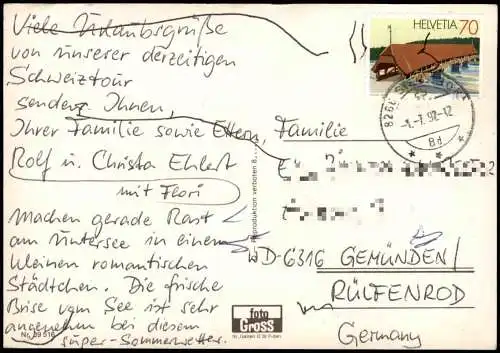 Viele Urlaubsgrüße
von unserer derzeitigen
Schweiztour
senden Ihnen,
Ihrer Familie sowie Eltern,
Rolf u. Christa Ehlert
mit Flori
Machen gerade Rast
am Untersee in einem
kleinen romantischen
Städtchen. Die frische
Brise vom See ist sehr
angenehm bei diesem
super-Sommerwetter.
Nr. 89 516
Reproduktion verboten
foto
GROSS
HELVETIA 70
8260
-1.-7.92-12
8d
Familie
WD-6316 GEMÜNDEN/
RÜLFENROD
Germany